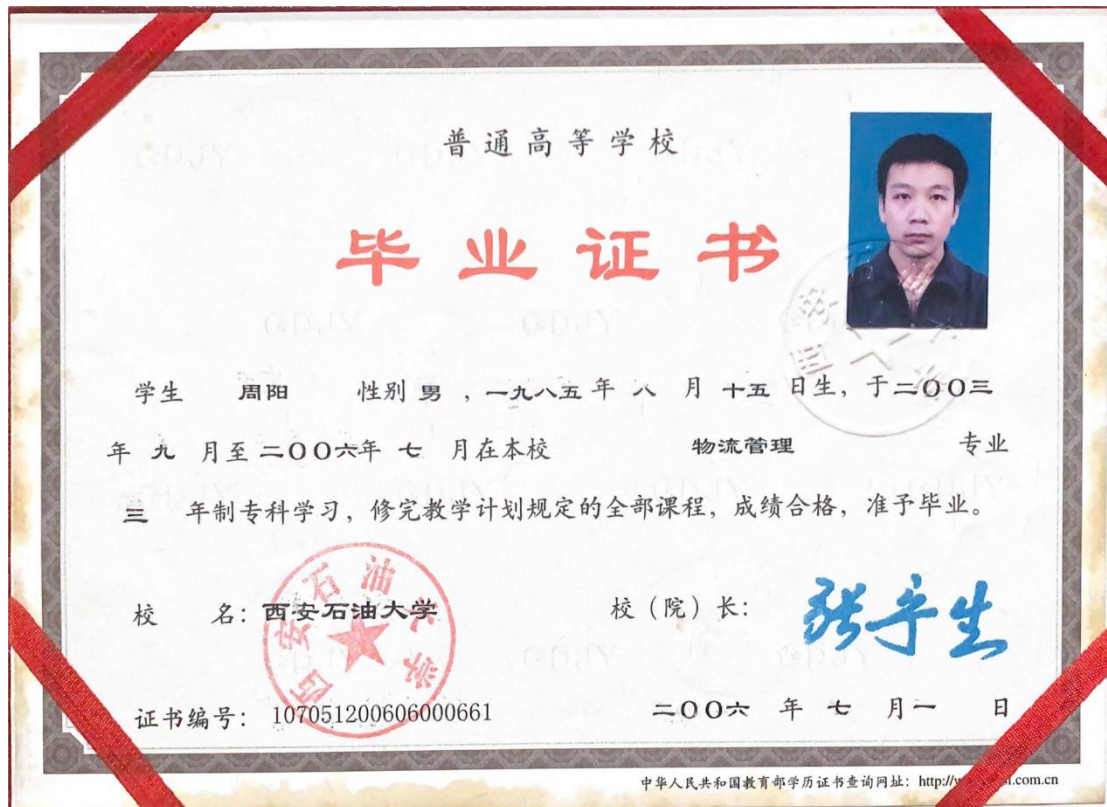 普通高等学校
毕业证书
学生 周阳 性别 男 ，一九八五 年 八 月 十五 日生，于二〇〇三
年 九 月至 二〇〇六年 七 月在本校 物流管理 专业
三 年制专科学习，修完教学计划规定的全部课程，成绩合格，准予毕业。
校 名：西安石油大学 校（院）长：
西安石油大学
证书编号：107051200606000661 二〇〇六 年 七 月一 日
中华人民共和国教育部学历证书查询网址：http://w
.com.cn